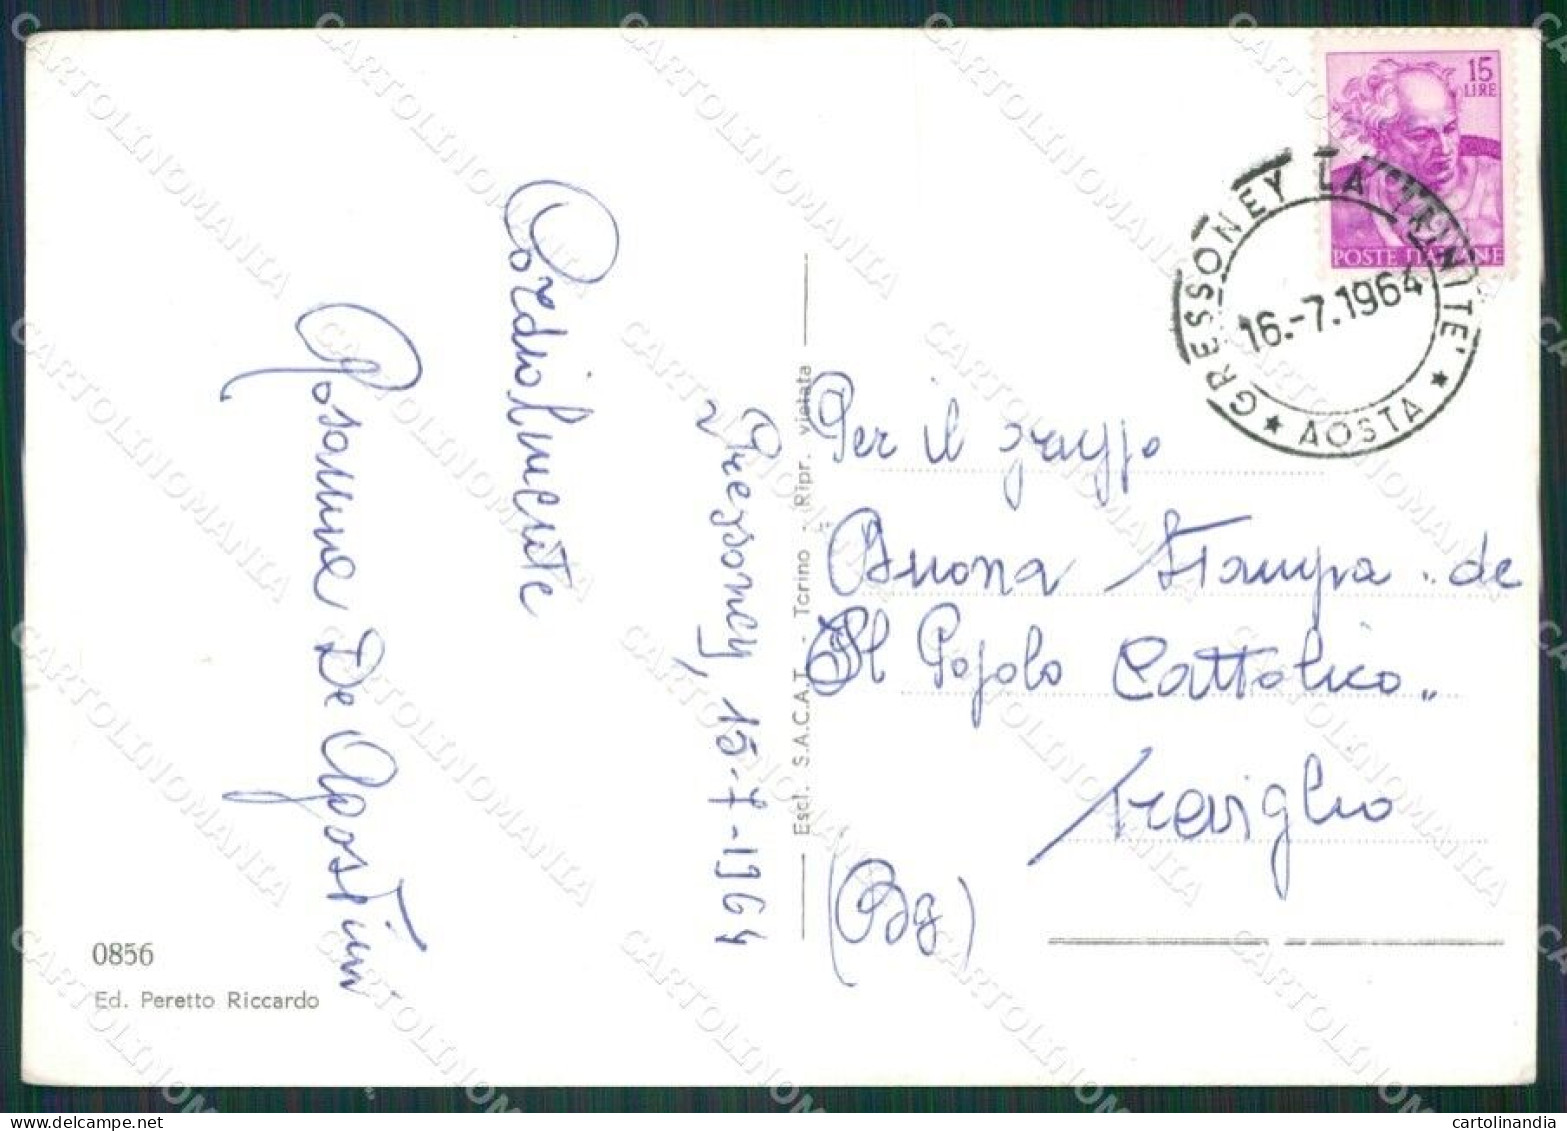 15
LIRE
POSTE ITALIANE
GRESSONEY LA TRINITE' ★ AOSTA ★
16.-7.1964
Cordialmente
Rosanna De Agostini
Gressoney, 15-7-1964
Per il gruppo
Buona Stampa "de
Il Popolo Cattolico"
Treviglio
(Bg)
Escl. S.A.C.A.T. - Torino - Ripr. vietata
0856
Ed. Peretto Riccardo
CARTOLINOMANIA
cartolinandia